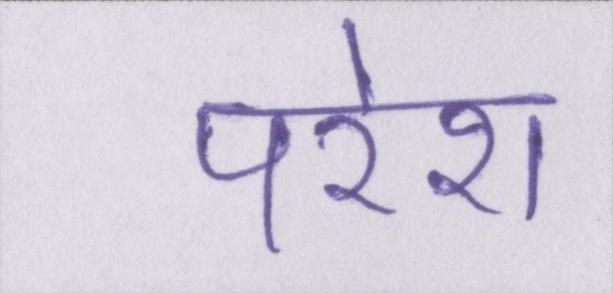 परेश